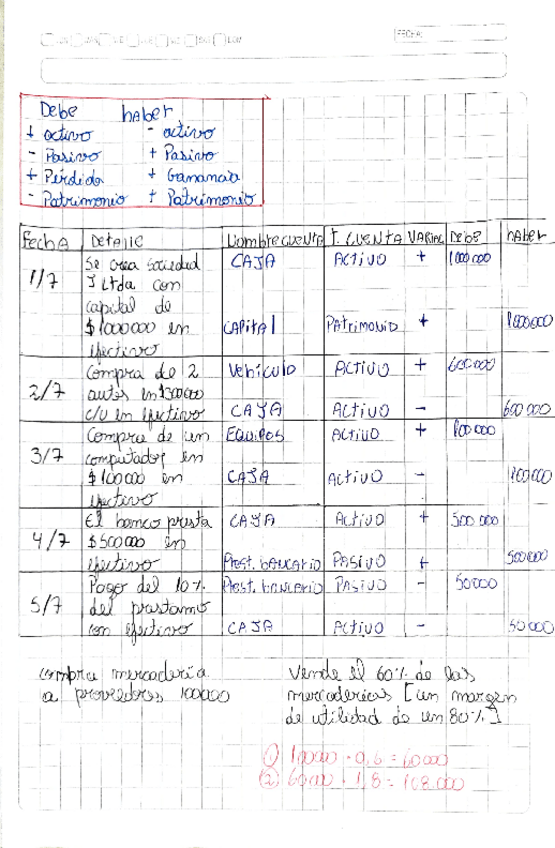 FECHA:
Debe haber
+ activo - activo
- Pasivo + Pasivo
+ Perdida + Ganancia
- Patrimonio + Patrimonio
Fecha Detalle Nombre cuenta T. CUENTA VARIAC Debe haber
1/7 Se crea sociedad CAJA ACTIVO + 1000000
J Ltda con
capital de
$1000000 en CAPital PAtrimonio + 1000000
efectivo
2/7 Compra de 2 Vehiculo ACTIVO + 600000
autos en $300000
c/u en efectivo CAJA ACTIVO - 600000
3/7 Compra de un EQUIPOS ACTIVO + 100000
computador en
$100000 en CAJA ACTIVO - 100000
efectivo
4/7 El banco presta CAJA ACTIVO + 500 000
$500000 en
efectivo Prest. bANCArio PASIVO + 500000
5/7 Pago del 10% Prest. bANCArio PASIVO - 50000
del prestamo
con efectivo CAJA ACTIVO - 50000
compra mercaderia
a proveedores 100000
Vende el 60% de las
mercaderias [un margen
de utilidad de un 80%]
1) 100000 · 0,6 = 60000
2) 60000 · 1,8 = 108.000